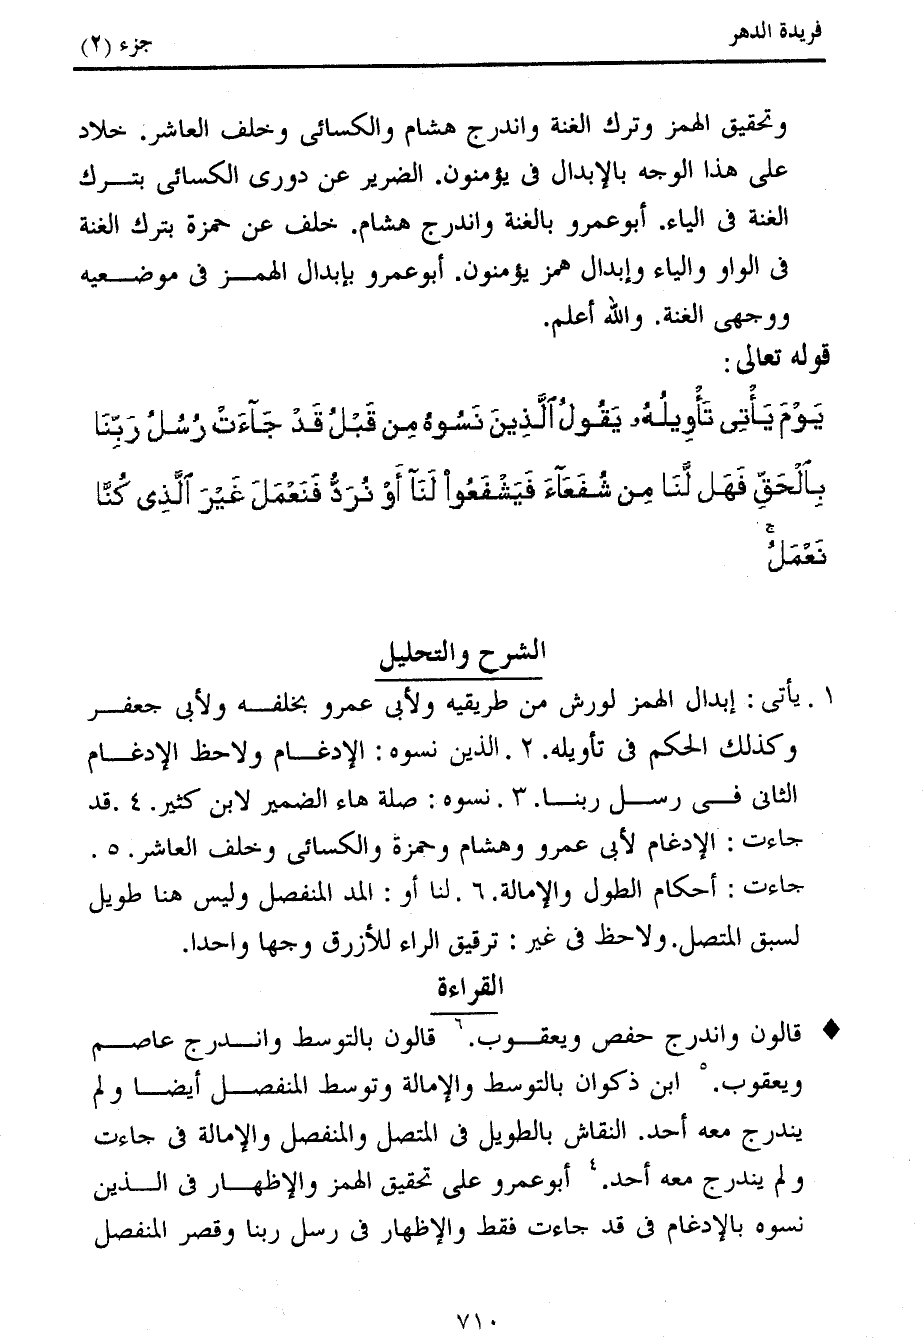 فريدة الدهر
جزء (٢)
وتحقيق الهمز وترك الغنة واندرج هشام والكسائى وخلف العاشر. خلاد
على هذا الوجه بالإبدال فى يؤمنون. الضرير عن دورى الكسائى بتـــرك
الغنة فى الياء. أبوعمرو بالغنة واندرج هشام. خلف عن حمزة بترك الغنة
فى الواو والياء وإبدال همز يؤمنون. أبوعمرو بإبدال الهمـــز فى موضـــعيه
ووجهى الغنة. والله أعلم.
قوله تعالى:
يَوْمَ يَأْتِى تَأْوِيلُهُۥ يَقُولُ ٱلَّذِينَ نَسُوهُ مِن قَبْلُ قَدْ جَآءَتْ رُسُلُ رَبِّنَا
بِٱلْحَقِّ فَهَل لَّنَا مِن شُفَعَآءَ فَيَشْفَعُوا۟ لَنَآ أَوْ نُرَدُّ فَنَعْمَلَ غَيْرَ ٱلَّذِى كُنَّا
نَعْمَلُ ۚ
الشرح والتحليل
١. يأتى: إبدال الهمز لورش من طريقيه ولأبى عمرو بخلفـــه ولأبى جعفـــر
وكذلك الحكم فى تأويله. ٢. الذين نسوه: الإدغـــام ولاحظ الإدغـــام
الثانى فـــى رســـل ربنـــا. ٣. نسوه: صلة هاء الضمير لابن كثير. ٤. قد
جاءت: الإدغام لأبى عمرو وهشام وحمزة والكسائى وخلف العاشر. ٥.
جاءت: أحكام الطول والإمالة. ٦. لنا أو: المد المنفصل وليس هنا طويل
لسبق المتصل. ولاحظ فى غير: ترقيق الراء للأزرق وجها واحدا.
القراءة
♦ قالون واندرج حفص ويعقـــوب.٦ قالون بالتوسط وانـــدرج عاصـــم
ويعقوب.٥ ابن ذكوان بالتوسط والإمالة وتوسط المنفصـــل أيضـــا ولم
يندرج معه أحد. النقاش بالطويل فى المتصل والمنفصل والإمالة فى جاءت
ولم يندرج معه أحد.٤ أبوعمرو على تحقيق الهمز والإظهـــار فى الـــذين
نسوه بالإدغام فى قد جاءت فقط والإظهار فى رسل ربنا وقصر المنفصل
٧١٠